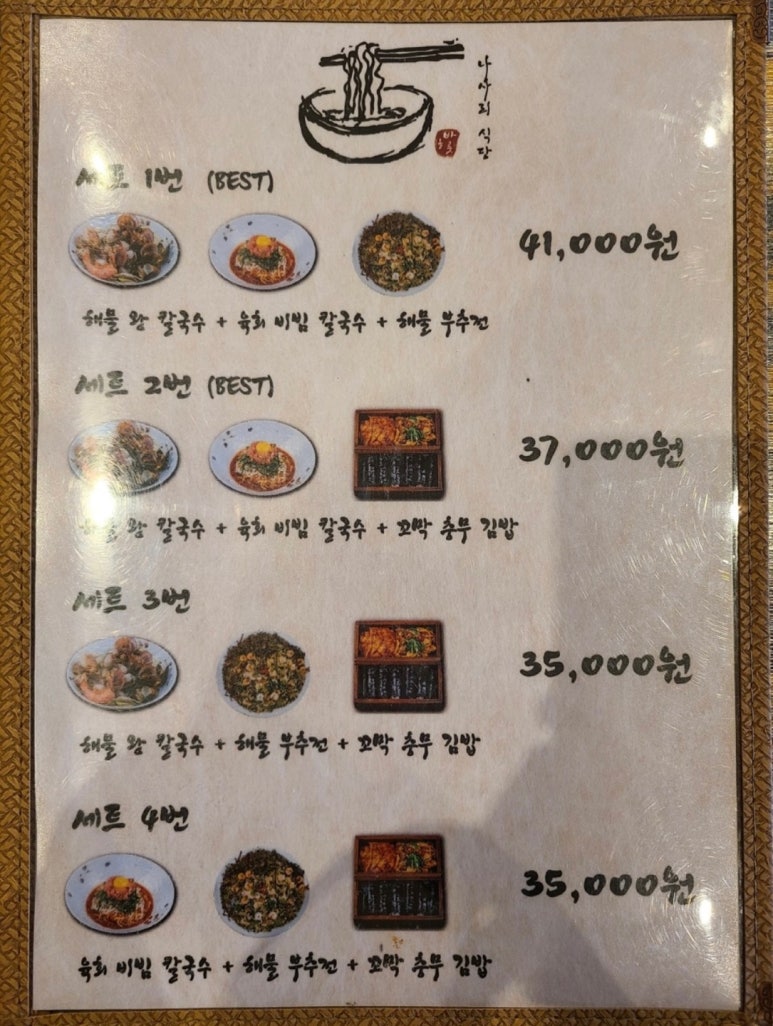 나사리 식당
세트 1번 (BEST)
41,000원
해물 왕 칼국수 + 육회 비빔 칼국수 + 해물 부추전
세트 2번 (BEST)
37,000원
해물 왕 칼국수 + 육회 비빔 칼국수 + 꼬막 충무 김밥
세트 3번
35,000원
해물 왕 칼국수 + 해물 부추전 + 꼬막 충무 김밥
세트 4번
35,000원
육회 비빔 칼국수 + 해물 부추전 + 꼬막 충무 김밥